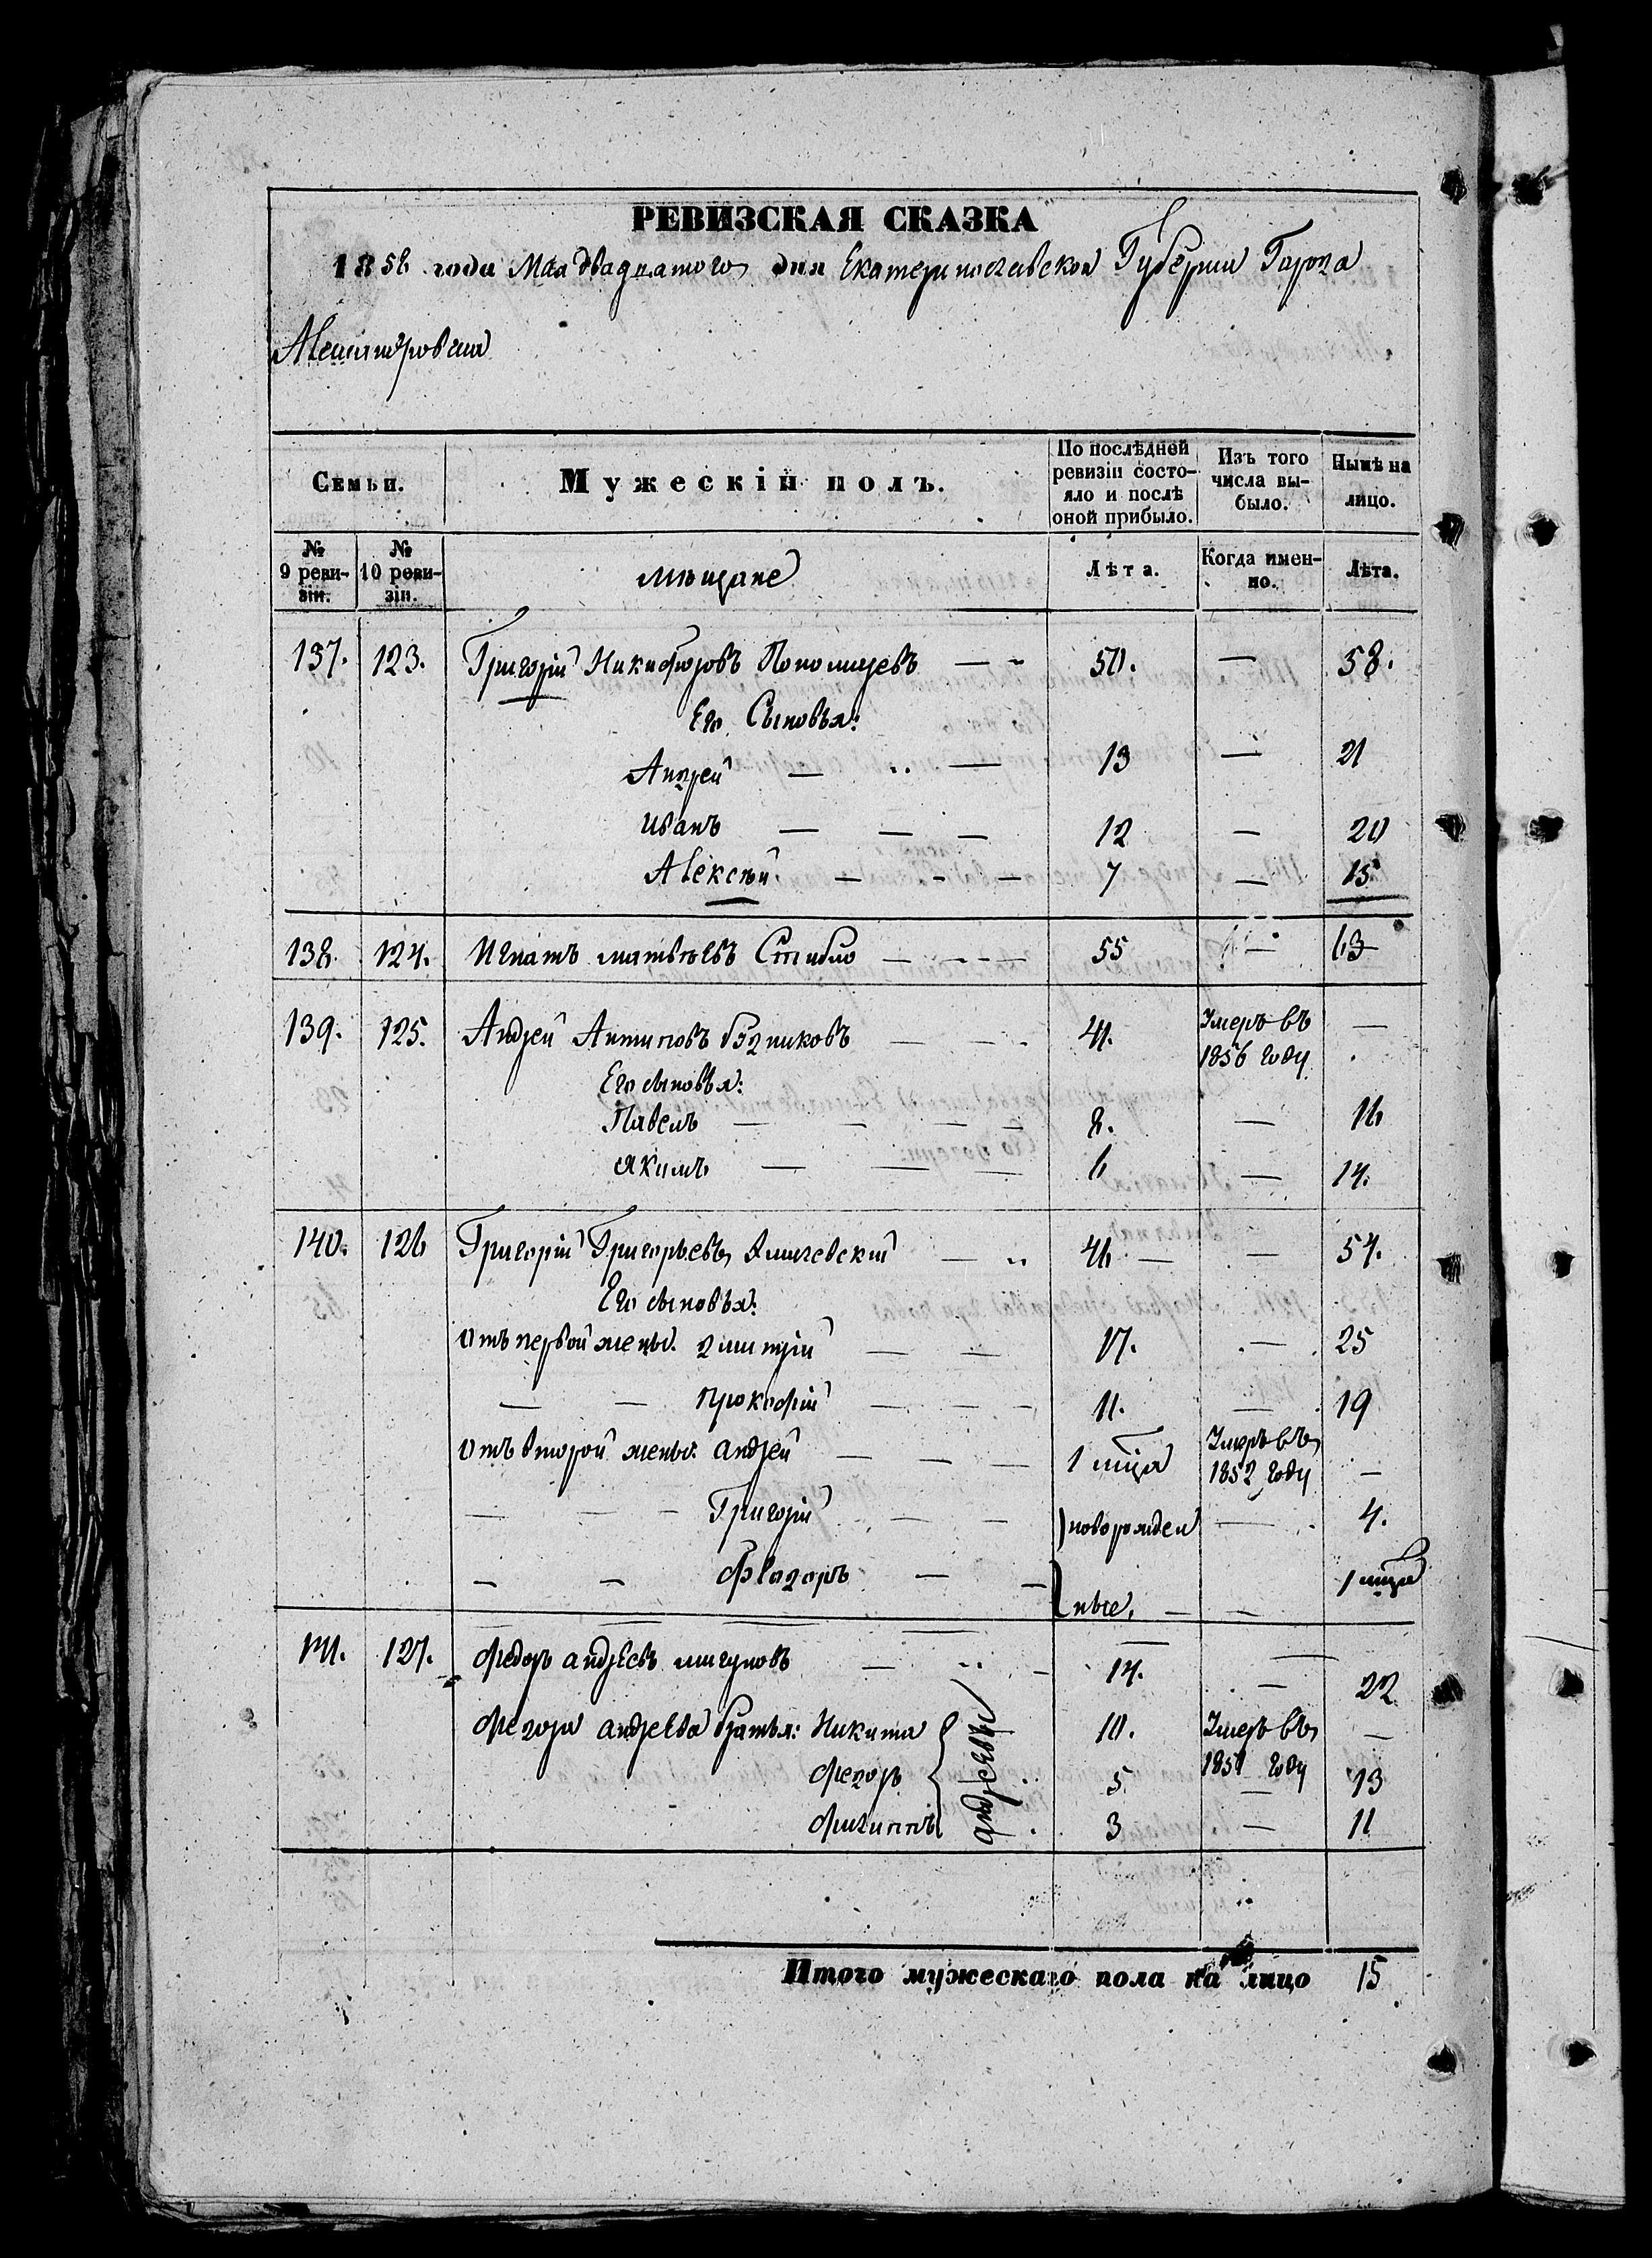 РЕВИЗСКАЯ СКАЗКА
1858 года Мая двадцатого дня Екатеринославской Губернии Города
Александровска
Семьи. Мужескій полъ. По послѣдней ревизіи состояло и послѣ оной прибыло. Изъ того числа выбыло. Нынѣ на лицо.
№ 9 ревизіи. № 10 ревизіи. мѣщане Лѣта. Когда именно. Лѣта.
137. 123. Григорій Никифоровъ Пономаревъ — - 50. — 58.
Его Сыновья:
Андрей — — 13 — 21
Иванъ — — — 12 — 20
Алексѣй — - — 7 — 15
138. 124. Игнатъ матвѣевъ — - - — 55 — 63
139. 125. Андрей Антиповъ — - - 41. Умеръ въ —
1856 году
Его сыновья:
Павелъ — — — — 8. — 16
Якимъ — — — 6 — 14.
140. 126 Григорій Григорьевъ — 46 — — 54.
Его сыновья:
Отъ первой жены: Дмитрій — — 17. — 25
— — Прокофій — - - 11. — 19
Отъ второй жены: андрей — — — 1 мѣца Умеръ въ 1852 году —
— — — Григорій — — новорожден — 4.
— — Ѳ — — ные. — — 1 мѣца
141. 127. Ѳедоръ андреевъ мигуновъ — - 14. — 22
Ѳедора андреева братья: Никита андреевы 10. Умеръ въ —
Ѳедоръ 5 185 году 13
Филиппъ 3 — 11
Итого мужескаго пола на лицо 15